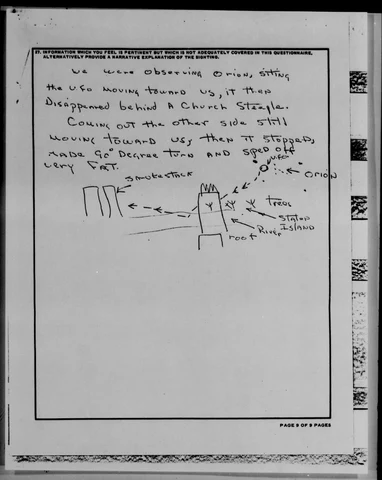 37. INFORMATION WHICH YOU FEEL IS PERTINENT BUT WHICH IS NOT ADEQUATELY COVERED IN THIS QUESTIONNAIRE,
ALTERNATIVELY PROVIDE A NARRATIVE EXPLANATION OF THE SIGHTING.
We were observing Orion, siting
the UFO moving toward us, it then
Disappeared behind A Church Steeple.
Coming out the other side still
moving toward us, then it stopped,
made 90° Degree turn and sped off
very FAT.
UFO
ORION
SMOKESTACK
Trees
Staton
ISLAND
River
roof
PAGE 9 OF 9 PAGES